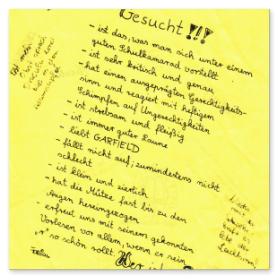 Gesucht !!!
- ist das, was man sich unter einem
guten Schulkamerad vorstellt
- ist sehr kritisch und genau
- hat einen ausgeprägten Gerechtigkeits-
sinn und reagiert mit heftigen
Schimpfen auf Ungerechtigkeiten
- ist strebsam und fleißig
- ist immer guter Laune
- liebt GARFIELD
- fällt nicht auf; zumindestens nicht
schlecht
- ist klein und zierlich
- hat die Mütze fast bis zu den
Augen hereingezogen
- erfreut uns mit seinem gekonnten
Vorlesen vor allem, wenn er sein
"r" so schön rollt
Wer